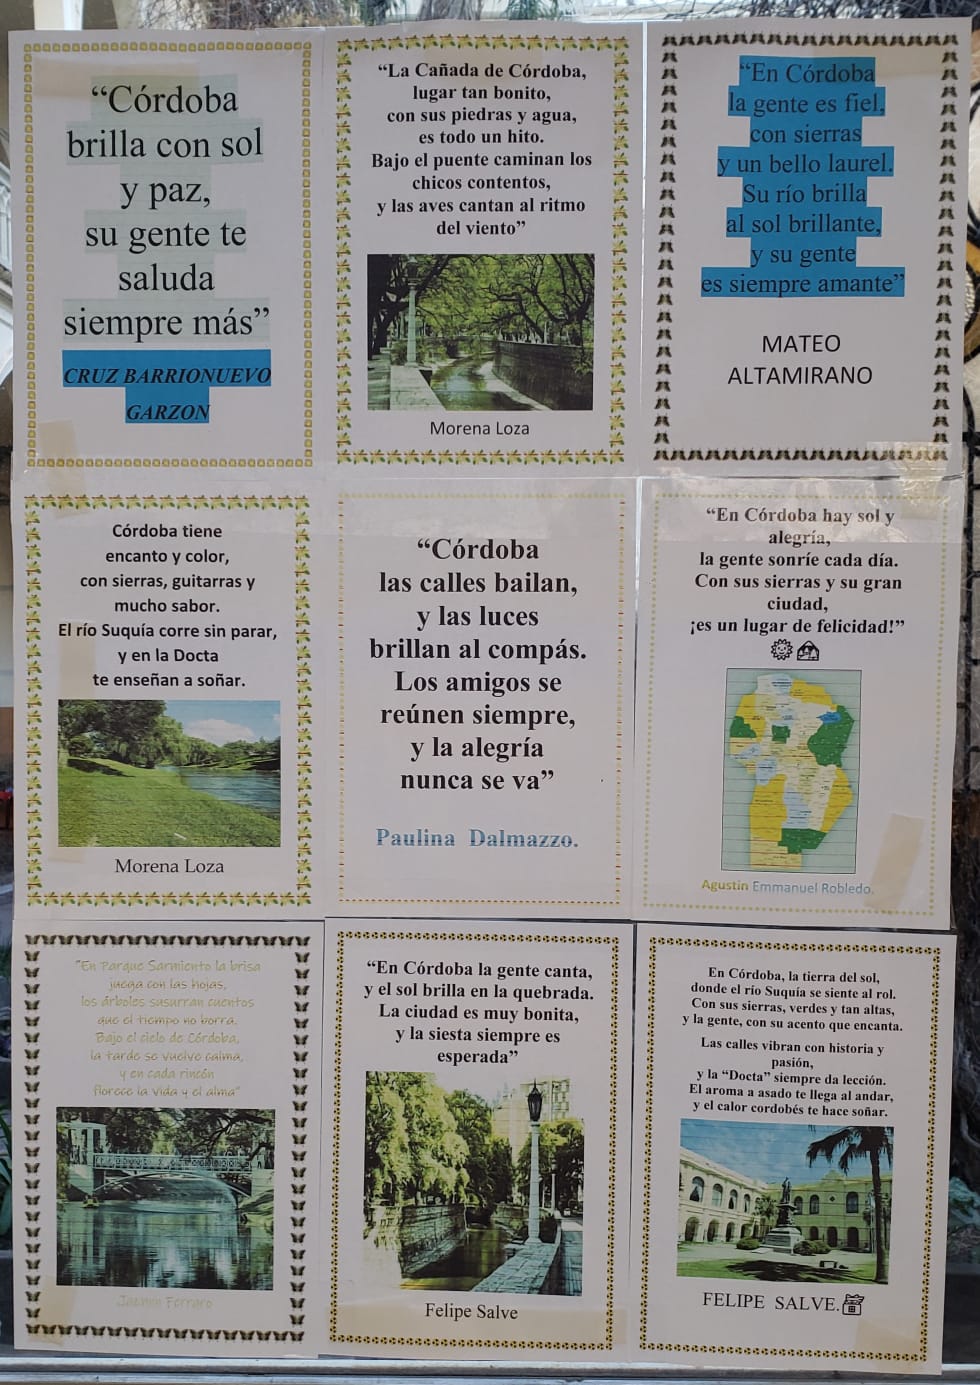 “Córdoba
brilla con sol
y paz,
su gente te
saluda
siempre más”
CRUZ BARRIONUEVO
GARZON
“La Cañada de Córdoba,
lugar tan bonito,
con sus piedras y agua,
es todo un hito.
Bajo el puente caminan los
chicos contentos,
y las aves cantan al ritmo
del viento”
Morena Loza
“En Córdoba
la gente es fiel,
con sierras
y un bello laurel.
Su río brilla
al sol brillante,
y su gente
es siempre amante”
MATEO
ALTAMIRANO
Córdoba tiene
encanto y color,
con sierras, guitarras y
mucho sabor.
El río Suquía corre sin parar,
y en la Docta
te enseñan a soñar.
Morena Loza
“Córdoba
las calles bailan,
y las luces
brillan al compás.
Los amigos se
reúnen siempre,
y la alegría
nunca se va”
Paulina Dalmazzo.
“En Córdoba hay sol y
alegría,
la gente sonríe cada día.
Con sus sierras y su gran
ciudad,
¡es un lugar de felicidad!”
Agustin Emmanuel Robledo.
“En Parque Sarmiento la brisa
juega con las hojas,
los árboles susurran cuentos
que el tiempo no borra.
Bajo el cielo de Córdoba,
la tarde se vuelve calma,
y en cada rincón
florece la vida y el alma”
Jazmin Ferraro
“En Córdoba la gente canta,
y el sol brilla en la quebrada.
La ciudad es muy bonita,
y la siesta siempre es
esperada”
Felipe Salve
En Córdoba, la tierra del sol,
donde el río Suquía se siente al rol.
Con sus sierras, verdes y tan altas,
y la gente, con su acento que encanta.
Las calles vibran con historia y
pasión,
y la “Docta” siempre da lección.
El aroma a asado te llega al andar,
y el calor cordobés te hace soñar.
FELIPE SALVE.